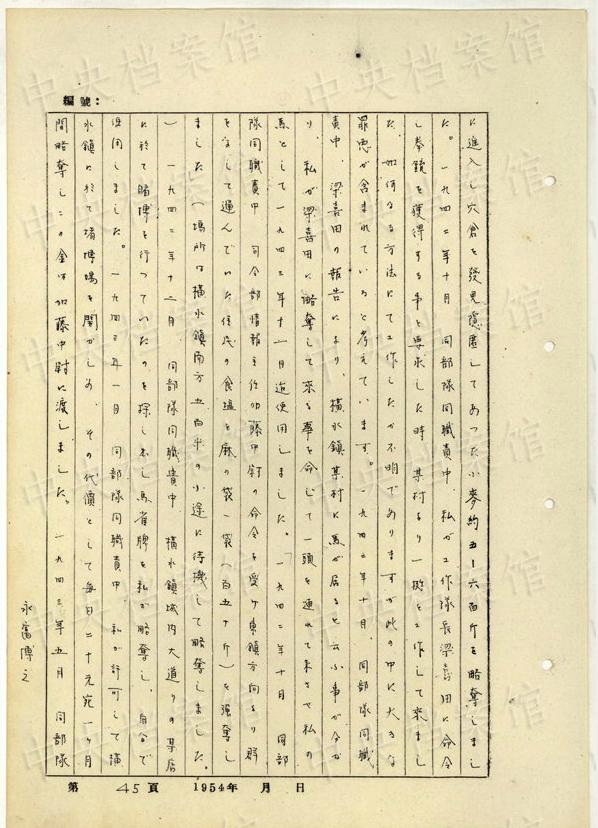 編號：
に進入し穴倉を發見隱慝してあった小麥約五-六百斤を略奪しまし
た。一九四二年十月 同部隊同職責中 私が工作隊長梁喜田に命令
し拳銃を獲得する事を要求した時 某村より一挺を工作して來まし
た、如何なる方法にて工作したか不明でありますが此の中に大きな
罪惡が含まれていると考えています。一九四二年十月、同部隊同職
責中、梁喜田の報告により、橫水鎭某村に馬が居ると云ふ事が分か
り、私が梁喜田に略奪して來る事を命じて一頭を連れて來させ私の
馬として一九四三年十一月迄使用しました。一九四二年十月 同部
隊同職責中 司令部情報主任加藤中尉の命令を受け東鎭方向より群
をなして運んでいた住民の食塩を麻の袋一袋(百五十斤)を強奪し
ました(場所は橫水鎭南方五百米の小途に待機して略奪しました。
) 一九四二年十二月、同部隊同職責中 橫水鎭城内大通りの某店
に於て賭博を行っていたのを探し出し馬雀牌を私が略奪し、自分で
使用しました。一九四三年一月 同部隊同職責中、私が許可して橫
水鎭に於て賭博場を開かしめ、その代價として每日二十元宛一ヶ月
間略奪しこの金は加藤中尉に渡しました。一九四三年五月 同部隊
永富博之
第 45頁 1954年 月 日
中央档案馆